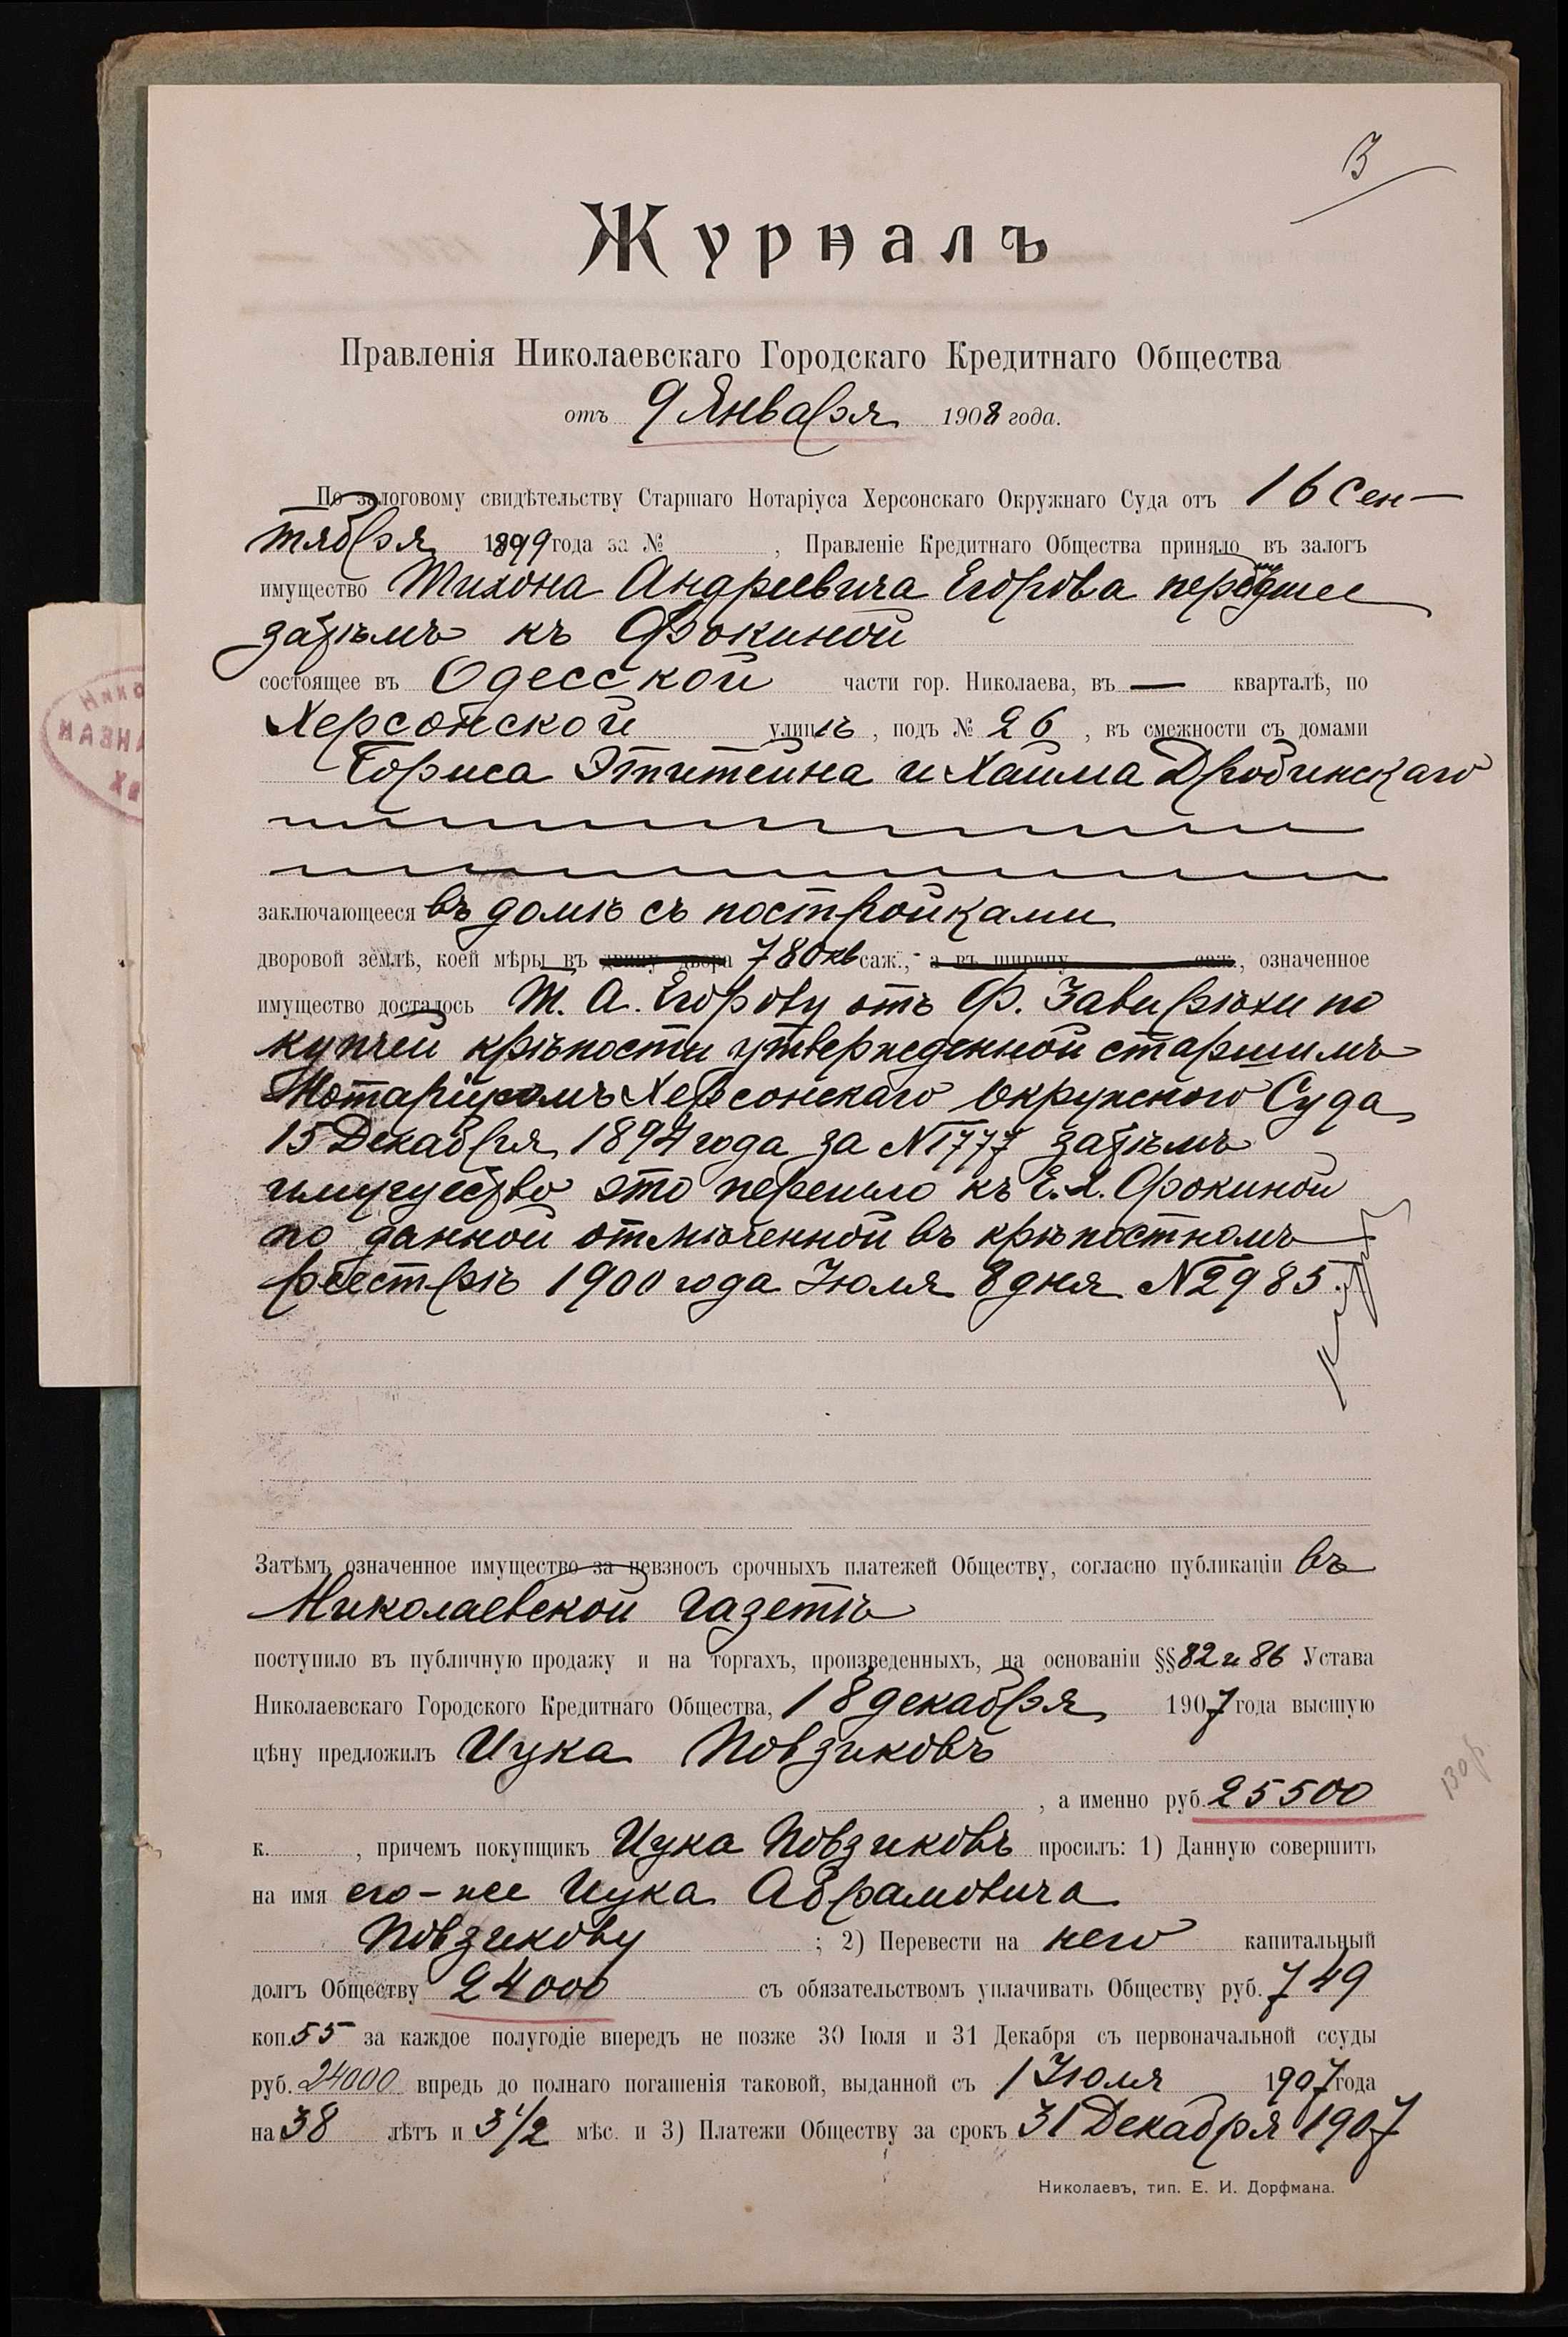 3
Журналъ
Правленія Николаевскаго Городскаго Кредитнаго Общества
отъ 9 Января 1908 года.
По залоговому свидѣтельству Старшаго Нотаріуса Херсонскаго Окружнаго Суда отъ 16 Сен-
тября 1899 года за № , Правленіе Кредитнаго Общества приняло въ залогъ
имущество Тихона Андреевича Егорова перешедшее
затѣмъ къ Фокиной
состоящее въ Одесской части гор. Николаева, въ — кварталѣ, по
Херсонской улицѣ, подъ № 26, въ смежности съ домами
Бориса Эпштейна и Хаима Дробинскаго
заключающееся въ домѣ съ постройками
дворовой землѣ, коей мѣры въ длину двора 780 кв саж., а въ ширину саж., означенное
имущество досталось Т. А. Егорову отъ Ф. Завирюхи по
купчей крѣпости утвержденной старшимъ
Нотаріусомъ Херсонскаго Окружного Суда
15 Декабря 1894 года за № 1777 затѣмъ
имущество это перешло къ Е. Я. Фокиной
по данной отмѣченной въ крѣпостномъ
реестрѣ 1900 года Іюля 8 дня № 2985.
Затѣмъ означенное имущество за невзносъ срочныхъ платежей Обществу, согласно публикаціи въ
Николаевской газетѣ
поступило въ публичную продажу и на торгахъ, произведенныхъ, на основаніи §§ 82 и 86 Устава
Николаевскаго Городского Кредитнаго Общества, 18 декабря 1907 года высшую
цѣну предложилъ Цука Повзиковъ
, а именно руб. 25500
к. , причемъ покупщикъ Цука Повзиковъ просилъ: 1) Данную совершить
на имя его-же Цука Абрамовича
Повзикову ; 2) Перевести на него капитальный
долгъ Обществу 24000 съ обязательствомъ уплачивать Обществу руб. 749
коп. 55 за каждое полугодіе впередъ не позже 30 Іюля и 31 Декабря съ первоначальной ссуды
руб. 24000 впредь до полнаго погашенія таковой, выданной съ 1 Іюля 1907 года
на 38 лѣтъ и 3½ мѣс. и 3) Платежи Обществу за срокъ 31 Декабря 1907
130 р.
Николаевъ, тип. Е. И. Дорфмана.